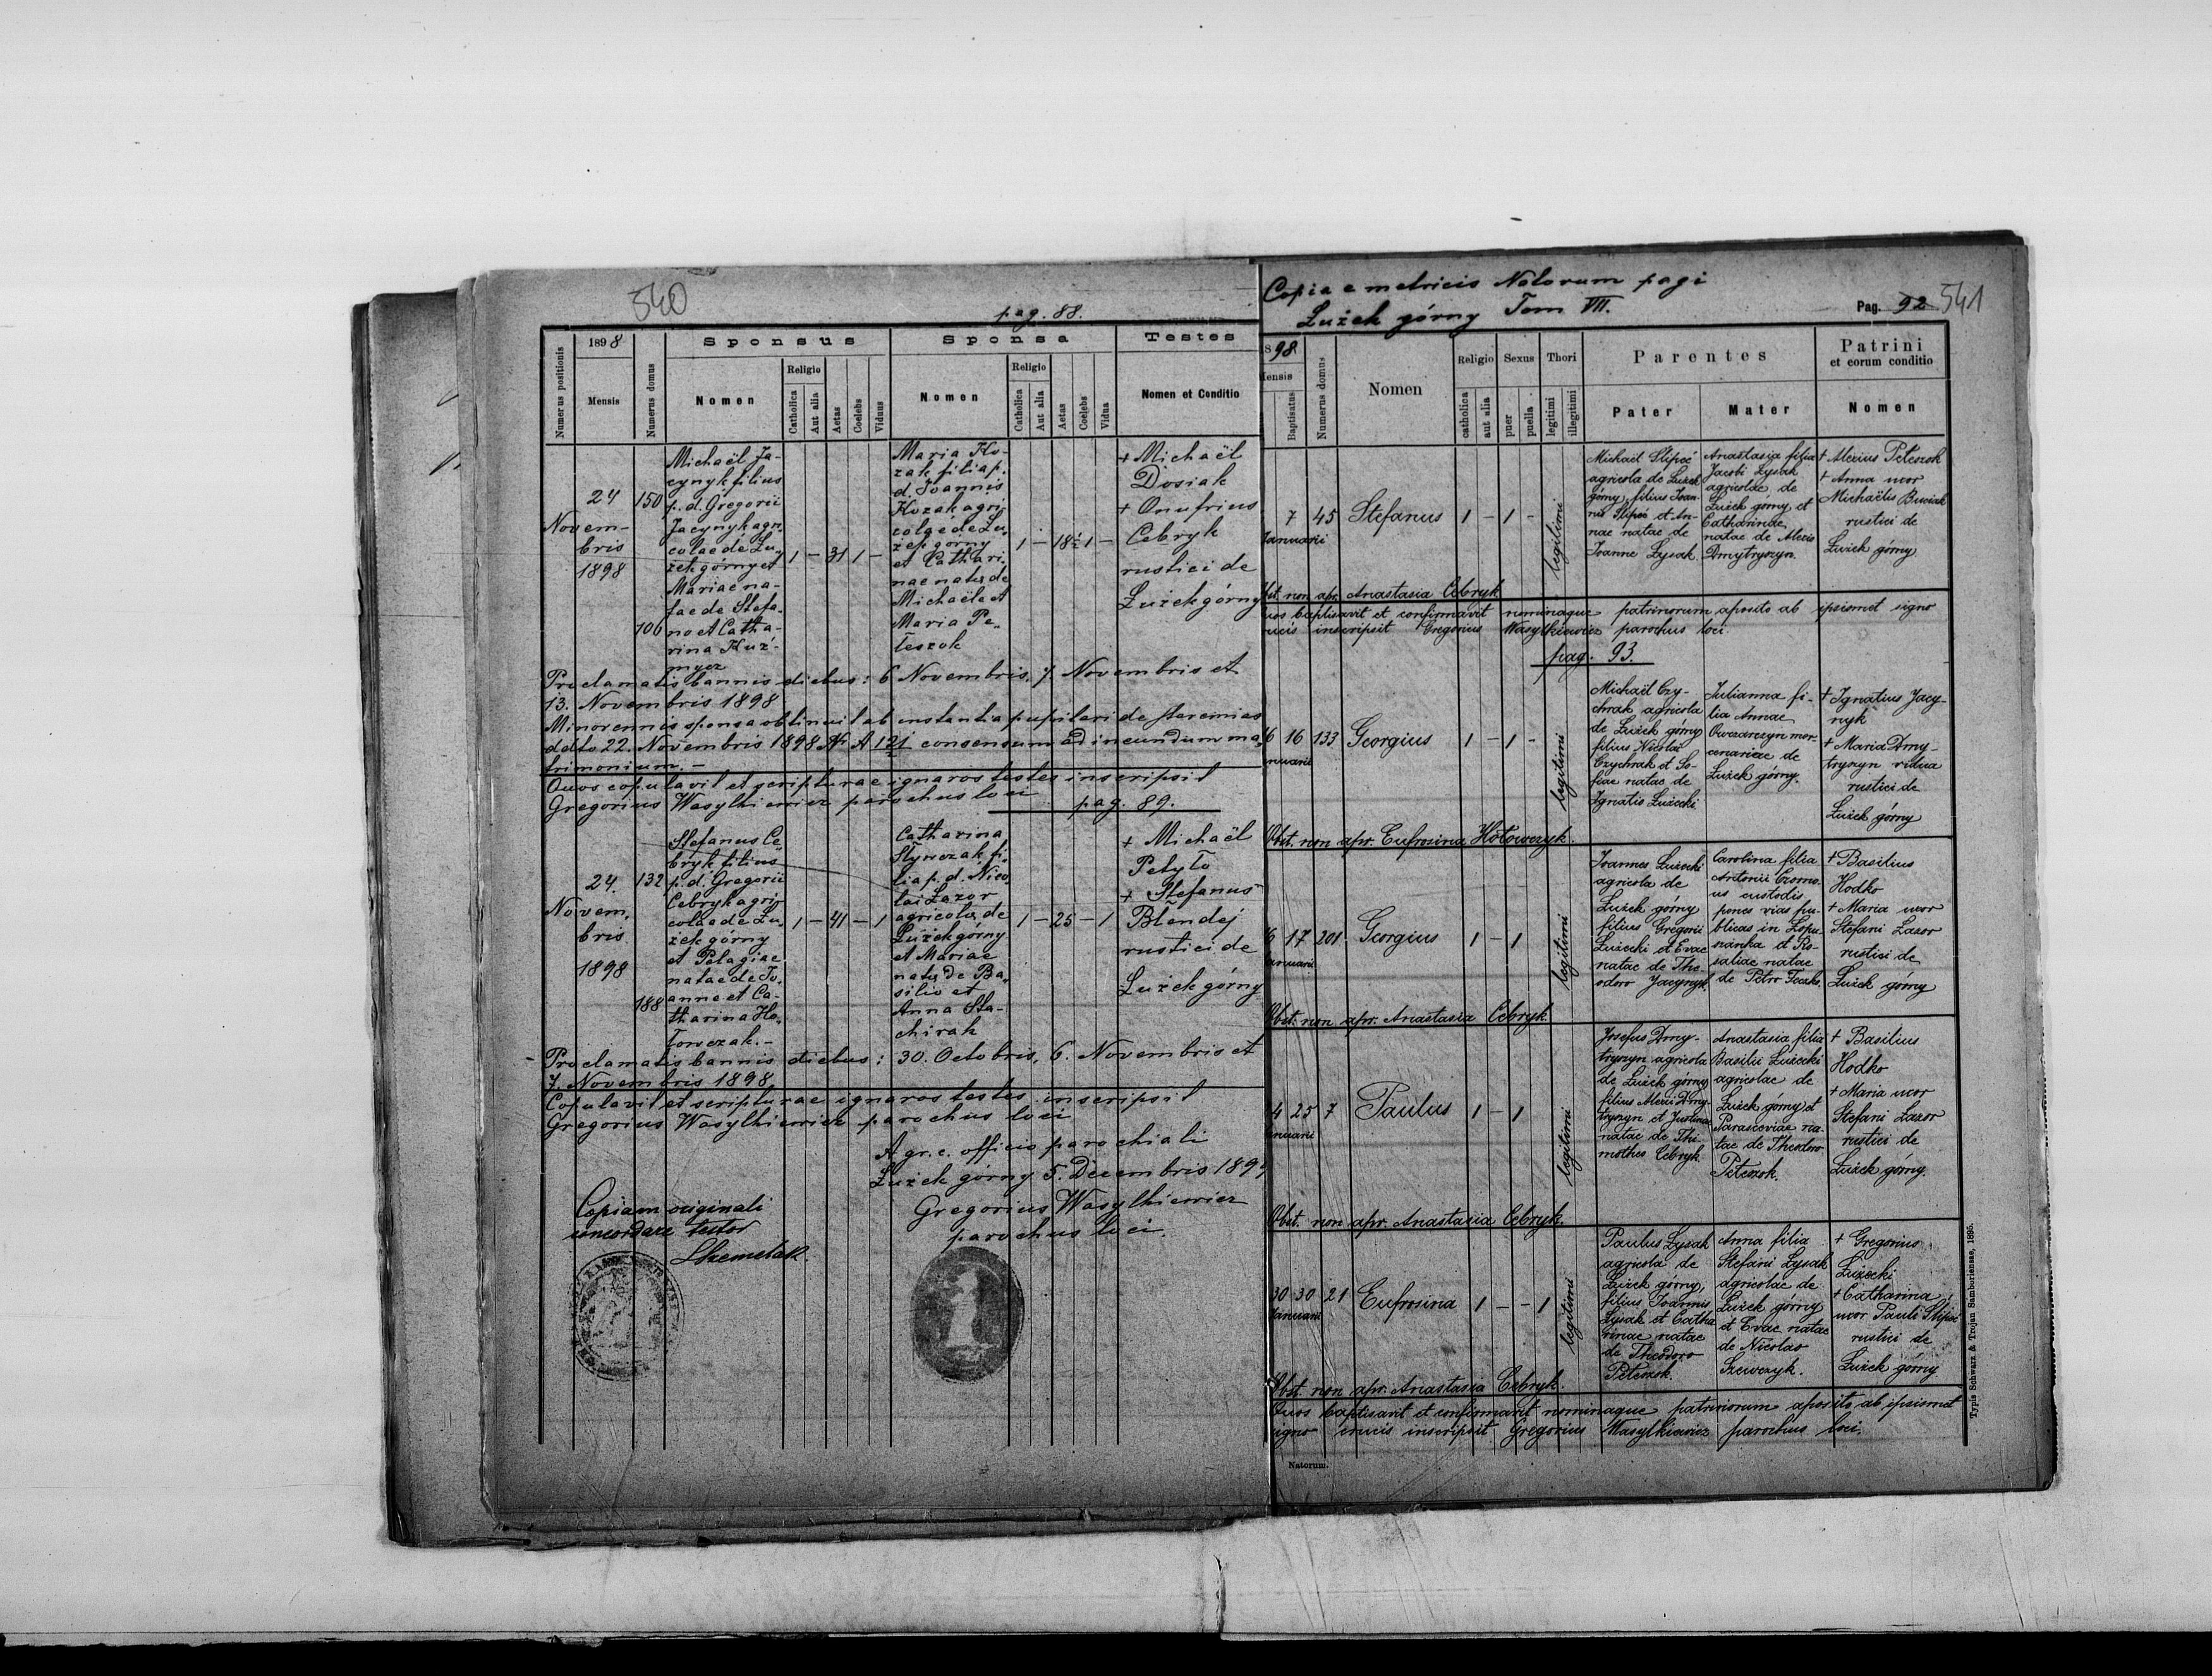 540
pag. 88.
1898
Numerus positionis
Mensis
Numerus domus
Sponsus
Nomen
Religio
Catholica
Aut alia
Aetas
Coelebs
Viduus
Sponsa
Nomen
Religio
Catholica
Aut alia
Aetas
Coelebs
Vidua
Testes
Nomen et Conditio
24
Novem-
bris
1898
150
106
Michaël Ja-
cynyk filius
p. d. Gregorii
Jacynyk agri-
colae de Łu-
żek górny et
Mariae na-
tae de Stefa-
no et Catha-
rina Kuź-
mycz
1 — 31 1 —
Maria Ko-
zak filia p.
d. Joannis
Kozak agri
colae de Łu-
żek górny
et Cathari-
nae natae de
Michaële et
Maria Pe-
teszok
1 — 18½ 1 —
+ Michaël
Dosiak
+ Onufrius
Cebryk
rustici de
Łużek górny
Proclamatis bannis diebus: 6 Novembris, 7. Novembris et
13. Novembris 1898
Minorennis sponsa obtinuit ab instantia pupilari de
ddto 22. Novembris 1898 Nr A 121 consensum ad ineundum ma-
trimonium. —
Quos copulavit et scripturae ignaros testes inscripsit
Gregorius Wasylkiewicz parochus loci
pag. 89.
24.
Novem-
bris
1898
132
188
Stefanus Ce-
bryk filius
p. d. Gregorii
Cebryk agri-
colae de Łu-
żek górny
et Pelagiae
natae de Jo-
anne et Ca-
tharina Ho-
łowczak. —
1 — 41 — 1
Catharina
Stynczak fi-
lia p. d. Nico-
lai Lazor
agricolae de
Łużek górny
et Mariae
natae de Ba-
silio et
Anna Sta-
chirak
1 — 25 — 1
+ Michaël
Petyło
+ Stefanus
Blendej
rustici de
Łużek górny
Proclamatis bannis diebus: 30. Octobris, 6. Novembris et
7. Novembris 1898
Copulavit et scripturae ignaros testes inscripsit
Gregorius Wasylkiewicz parochus loci
A gr. c. officio parochiali
Łużek górny 5. Decembris 189
Gregorius Wasylkiewicz
parochus loci.
Copiam originali
concordare testor
Copia e metricis Natorum pagi
Łużek górny Tom VII.
Pag. 92
541
1898
Mensis
Baptisatus
Numerus domus
Nomen
Religio
catholica
aut alia
Sexus
puer
puella
Thori
legitimi
illegitimi
Parentes
Pater
Mater
Patrini
et eorum conditio
Nomen
7
Januarii
45
Stefanus
1 — 1 —
legitimi
Michaël Slipeć
agricola de Łużek
górny, filius Joan-
nis Slipeć et An-
nae natae de
Joanne Łysak.
Anastasia filia
Jacobi Łysak
agricolae de
Łużek górny, et
Catharinae
natae de Alexio
Dmytryszyn.
+ Alexius Peteszok
+ Anna uxor
Michaëlis Busiak
rustici de
Łużek górny
Obst. non apr. Anastasia Cebryk
Quos baptisavit et confirmavit nominaque patrinorum aposito ab ipsismet signo
crucis inscripsit Gregorius Wasylkiewicz parochus loci
pag. 93.
16 133
Januarii
Georgius
1 — 1 —
legitimi
Michaël Czy-
chrak agricola
de Łużek górny
filius Nicolai
Czychrak et So-
fiae natae de
Ignatio Łużecki
Julianna fi-
lia Annae
Owczarczyn mer-
cenariae de
Łużek górny.
+ Ignatius Jacy-
nyk
+ Maria Dmy-
tryszyn vidua
rustici de
Łużek górny
Obst. non apr. Eufrosina Hołowczyk.
17 201.
Januarii
Georgius
1 — 1
legitimi
Joannes Łużecki
agricola de
Łużek górny
filius Gregorii
Łużecki et Evae
natae de The-
odoro Jacynyk.
Carolina filia
Antonii Czorno-
us custodis
penes vias pu-
blicas in Łopu-
szanka et Ro-
saliae natae
de Petro
+ Basilius
Hodko
+ Maria uxor
Stefani Lazor
rustici de
Łużek górny
Obst. non apr. Anastasia Cebryk
4 25 7
Januarii
Paulus
1 — 1
legitimi
Josefus Dmy-
tryszyn agricola
de Łużek górny
filius Alexii Dmy-
tryszyn et Justinae
natae de Thi-
motheo Cebryk.
Anastasia filia
Basilii Łużecki
agricolae de
Łużek górny et
Parasceviae na-
tae de Theodoro
Peteszok.
+ Basilius
Hodko
+ Maria uxor
Stefani Lazor
rustici de
Łużek górny.
Obst. non apr. Anastasia Cebryk.
30 30 21
Januarii
Eufrosina
1 — — 1
legitimi
Paulus Łysak
agricola de
Łużek górny,
filius Joannis
Łysak et Catha
rinae natae
de Theodoro
Peteszok.
Anna filia
Stefani Łysak
agricolae de
Łużek górny
et Evae natae
de Nicolao
Szewczyk.
+ Gregorius
Łużecki
+ Catharina
uxor Pauli Slipeć
rustici de
Łużek górny
Obst. non apr. Anastasia Cebryk.
Quos baptisavit et confirmavit nominaque patrinorum aposito ab ipsismet
signo crucis inscripsit Gregorius Wasylkiewicz parochus loci.
Natorum.
Typis Schwarz & Trojan Samboriensae, 1895.